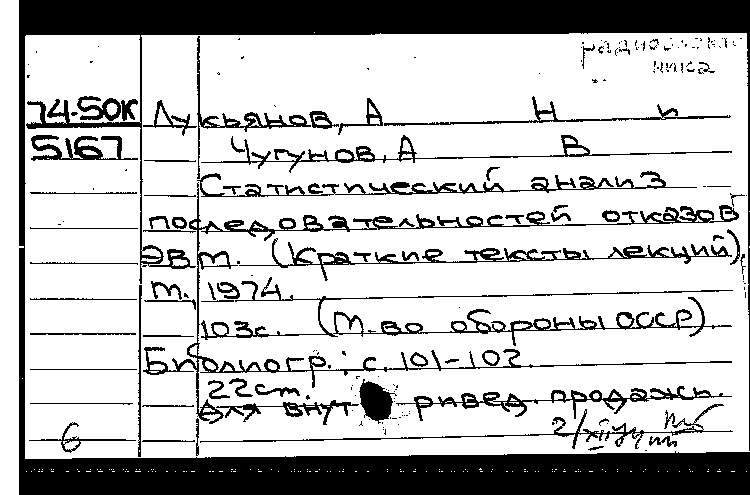 74-50К Лукьянов, А Н и
5167 Чугунов, А В
Статистический анализ
последовательностей отказов
ЭВМ. (Краткие тексты лекций).
М., 1974.
103с. (М-во обороны СССР).
Библиогр.: с. 101-102.
22см.
Для внут ривед. продажи.
6